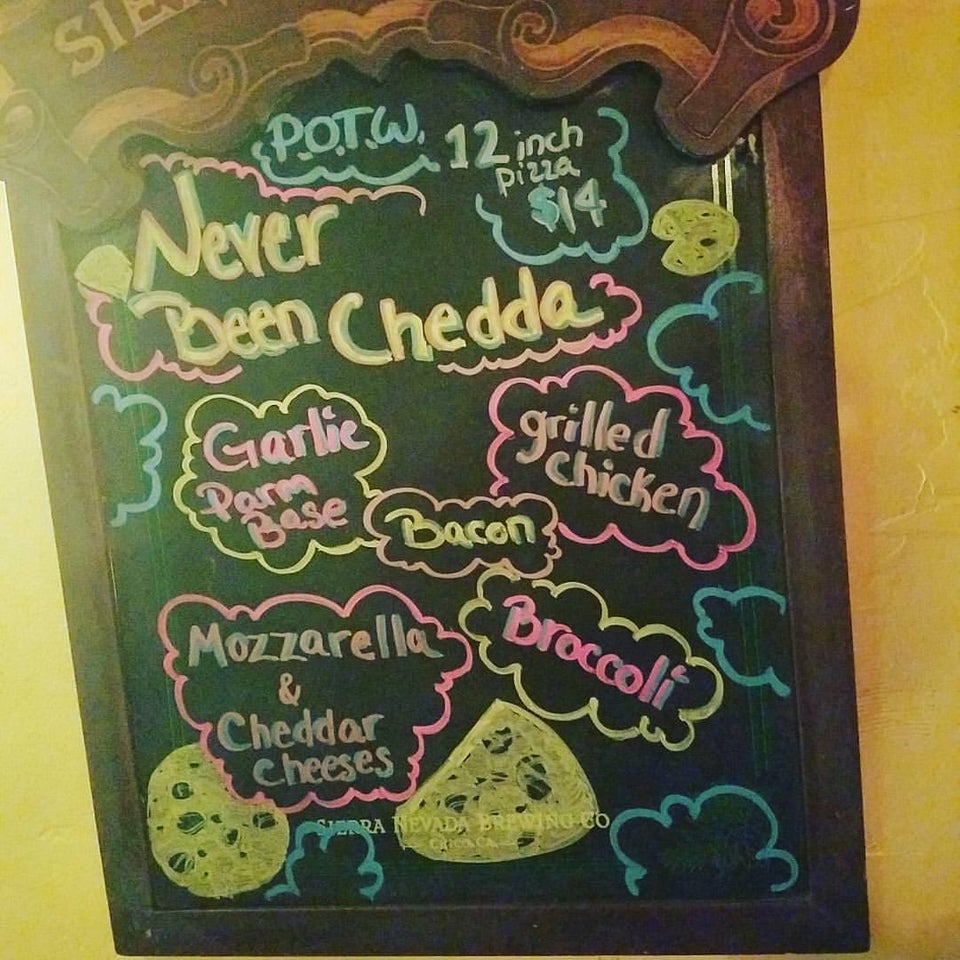 SIER
P.O.T.W.
12 inch
pizza
$14
Never
Been Chedda
Garlic
Parm
Base
grilled
chicken
Bacon
Mozzarella
&
Cheddar
cheeses
Broccoli
SIERRA NEVADA BREWING CO
CHICO, CA